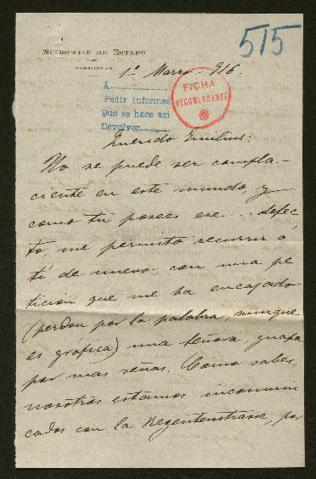 515
MINISTERIO DE ESTADO
PARTICULAR
1º Marzo 916.
A
Pedir informes
Que se hace
Devolver
FICHA
RECOMANDANTE
Querido Emilius:
No se puede ser compla-
ciente en este mundo, y
como tu posees ese... defec-
to, me permito recurrir á
ti de nuevo con una pe-
ticion que me ha encajado
(perdon por la palabra, aunque
es gráfica) una señora, guapa
por mas señas. Como sabes,
nosotros estamos incomuni-
cados con la Regentenstrasse, por